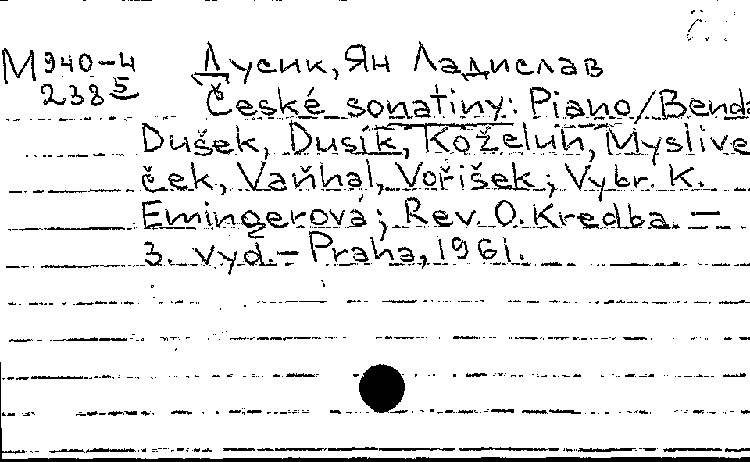 М 940-4 Дусик, Ян Ладислав
238 5
České sonatiny: Piano/Benda
Dušek, Dusík, Koželuh, Myslive
ček, Vaňhal, Voříšek; Vybr. K.
Emingerová; Rev. O. Kredba. —
3. vyd. – Praha, 1961.